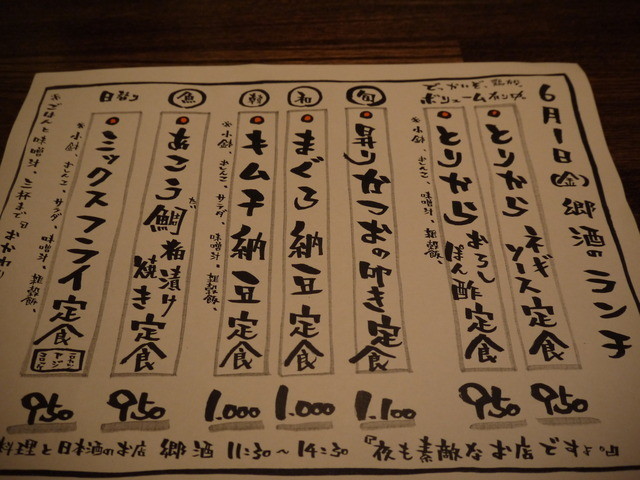 6月1日(金)郷酒のランチ
ボリュームカンタン
とりから ネギソース定食
950
とりから おろしぽん酢定食
950
※小鉢、おしんこ、味噌汁、雑穀飯、
旬
昇りかつおの叩き定食
1.100
和
まぐろ納豆定食
1.000
韓
キムチ納豆定食
1.000
※小鉢、おしんこ、サラダ、味噌汁、雑穀飯、
魚
あこう鯛粕漬け焼き定食
だい
950
日替り
ミックスフライ定食
950
※小鉢、おしんこ、サラダ、味噌汁、雑穀飯、
※ごはんと味噌汁、二杯までおかわり
料理と日本酒のお店 郷酒 11:30〜14:30 『夜も素敵なお店ですよ。』